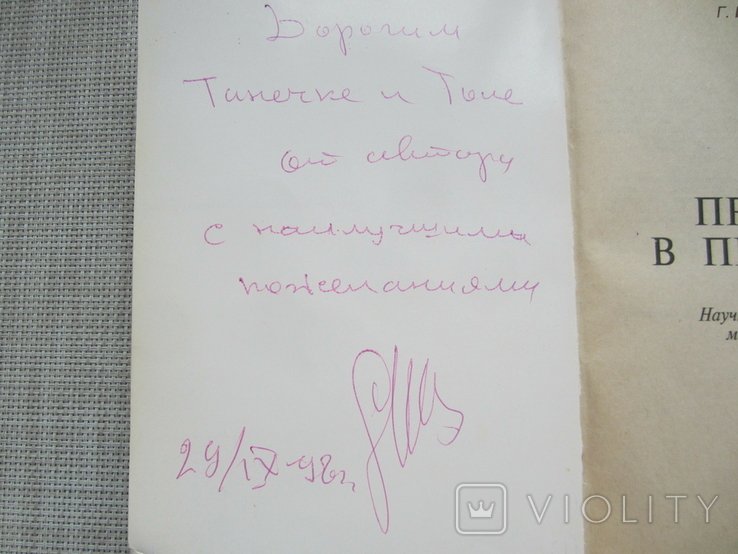 Дорогим
Танечке и Толе
от автора
с наилучшими
пожеланиями
29/IX-98г.
Г.
В
Науч
VIOLITY